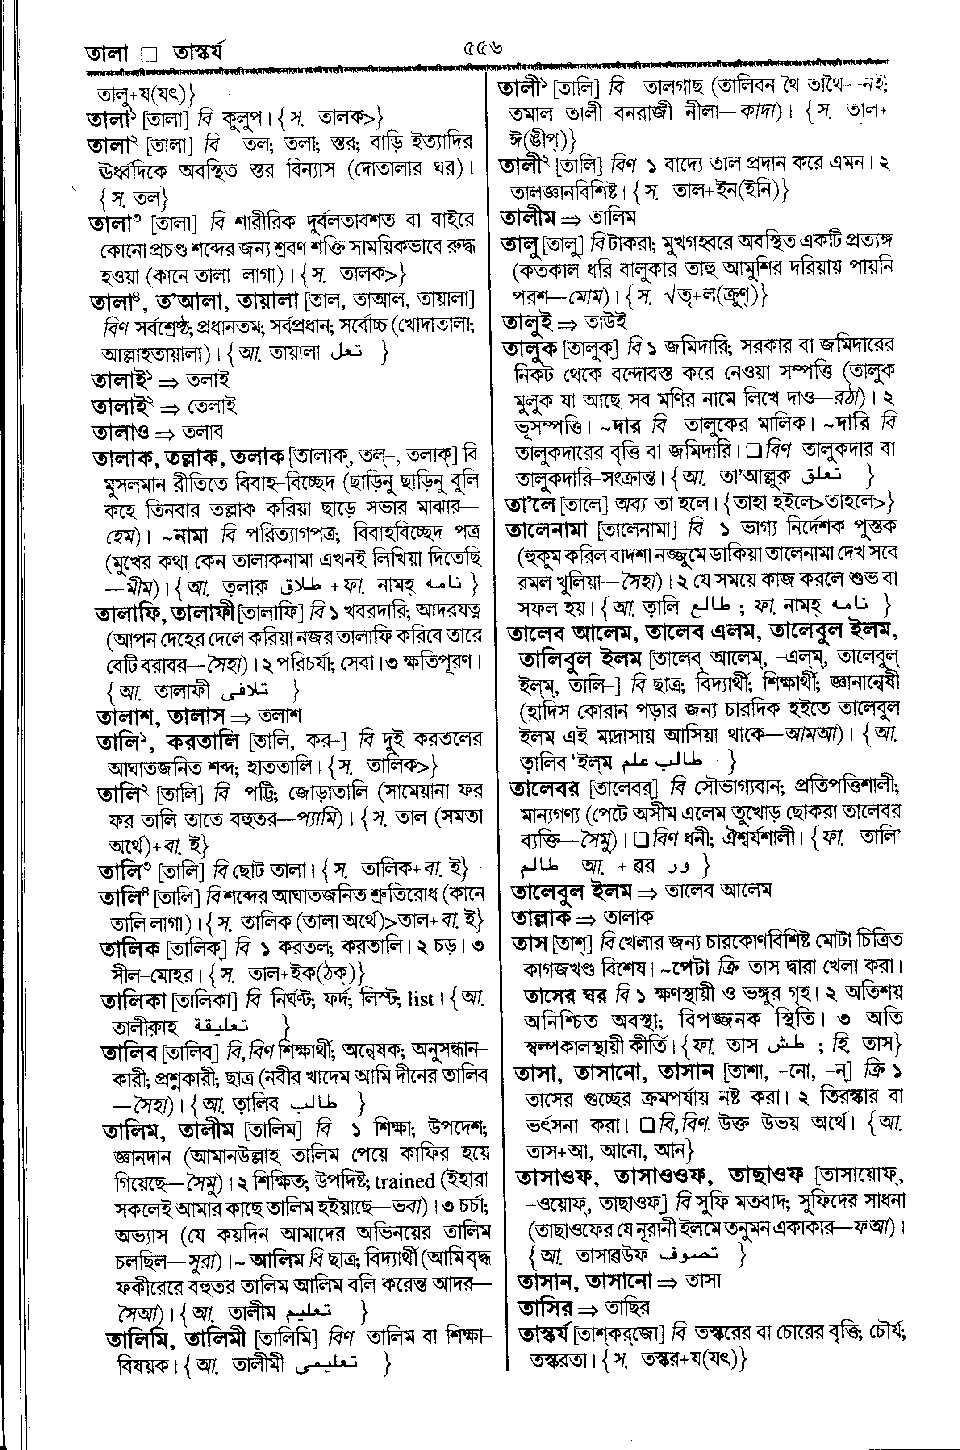 তালা □ তাস্কর্য
৫৫৬
তালু+য(যৎ)}
তালা১ [তালা] বি কুলুপ। {স. তালক>}
তালা২ [তালা] বি তল; তলা; স্তর; বাড়ি ইত্যাদির
ঊর্ধ্বদিকে অবস্থিত স্তর বিন্যাস (দোতালার ঘর)।
{স. তল}
তালা৩ [তালা] বি শারীরিক দুর্বলতাবশত বা বাইরে
কোনো প্রচণ্ড শব্দের জন্য শ্রবণ শক্তি সাময়িকভাবে রুদ্ধ
হওয়া (কানে তালা লাগা)। {স. তালক>}
তালা৪, ত'আলা, তায়ালা [তাল, তাআল, তায়ালা]
বিণ সর্বশ্রেষ্ঠ; প্রধানতম; সর্বপ্রধান; সর্বোচ্চ (খোদাতালা;
আল্লাহতায়ালা)। {আ. তায়ালা تعل }
তালাই১ ⇒ তলাই
তালাই২ ⇒ তেলাই
তালাও ⇒ তলাব
তালাক, তল্লাক, তলাক [তালাক্, তল্-, তলাক্] বি
মুসলমান রীতিতে বিবাহ-বিচ্ছেদ (ছাড়িনু ছাড়িনু বুলি
কহে তিনবার তল্লাক করিয়া ছাড়ে সভার মাঝার—
হেম)। ~নামা বি পরিত্যাগপত্র; বিবাহবিচ্ছেদ পত্র
(মুখের কথা কেন তালাকনামা এখনই লিখিয়া দিতেছি
—মীম)। {আ. ত্বলাক় طلاق + ফা. নামহ্ نامه }
তালাফি, তালাফী [তালাফি] বি ১ খবরদারি; আদরযত্ন
(আপন দেহের দেলে করিয়া নজর তালাফি করিবে তারে
বেটি বরাবর—সৈহা)। ২ পরিচর্যা; সেবা। ৩ ক্ষতিপূরণ।
{আ. তালাফী تلافی }
তালাশ, তালাস ⇒ তলাশ
তালি১, করতালি [তালি, কর-] বি দুই করতলের
আঘাতজনিত শব্দ; হাততালি। {স. তালিক>}
তালি২ [তালি] বি পট্টি; জোড়াতালি (সামেয়ানা ফর
ফর তালি তাতে বহুতর—প্যামি)। {স. তাল (সমতা
অর্থে)+বা. ই}
তালি৩ [তালি] বি ছোট তালা। {স. তালিক+বা. ই}
তালি৪ [তালি] বি শব্দের আঘাতজনিত শ্রুতিরোধ (কানে
তালি লাগা)। {স. তালিক (তালা অর্থে)>তাল+বা. ই}
তালিক [তালিক্] বি ১ করতল; করতালি। ২ চড়। ৩
সীল-মোহর। {স. তাল+ইক(ঠক্)}
তালিকা [তালিকা] বি নির্ঘণ্ট; ফর্দ; লিস্ট; list। {আ.
তালীক়াহ تعليقة }
তালিব [তালিব্] বি,বিণ শিক্ষার্থী; অন্বেষক; অনুসন্ধান-
কারী; প্রশ্নকারী; ছাত্র (নবীর খাদেম আমি দীনের তালিব
—সৈহা)। {আ. ত্বালিব طالب }
তালিম, তালীম [তালিম] বি ১ শিক্ষা; উপদেশ;
জ্ঞানদান (আমানউল্লাহ তালিম পেয়ে কাফির হয়ে
গিয়েছে—সৈমু)। ২ শিক্ষিত; উপদিষ্ট; trained (ইহারা
সকলেই আমার কাছে তালিম হইয়াছে—ভবা)। ৩ চর্চা;
অভ্যাস (যে কয়দিন আমাদের অভিনয়ের তালিম
চলছিল—সুরা)। ~ আলিম বি ছাত্র; বিদ্যার্থী (আমি বৃদ্ধ
ফকীরেরে বহুতর তালিম আলিম বলি করেন্ত আদর—
সৈআ)। {আ. তালীম تعليم }
তালিমি, তালিমী [তালিমি] বিণ তালিম বা শিক্ষা-
বিষয়ক। {আ. তালীমী تعليمی }
তালী১ [তালি] বি তালগাছ (তালিবন থৈ তাথৈ—নই;
তমাল তালী বনরাজী নীলা—কাদা)। {স. তাল+
ঈ(ঙীপ্)}
তালী২ [তালি] বিণ ১ বাদ্যে তাল প্রদান করে এমন। ২
তালজ্ঞানবিশিষ্ট। {স. তাল+ইন(ইনি)}
তালীম ⇒ তালিম
তালু [তালু] বি টাকরা; মুখগহ্বরে অবস্থিত একটি প্রত্যঙ্গ
(কতকাল ধরি বালুকার তাহু আমুশির দরিয়ায় পায়নি
পরশ—মোম)। {স. √তৃ+ল(ঞুণ্)}
তালুই ⇒ তাউই
তালুক [তালুক্] বি ১ জমিদারি; সরকার বা জমিদারের
নিকট থেকে বন্দোবস্ত করে নেওয়া সম্পত্তি (তালুক
মুলুক যা আছে সব মণির নামে লিখে দাও—রঠা)। ২
ভূসম্পত্তি। ~দার বি তালুকের মালিক। ~দারি বি
তালুকদারের বৃত্তি বা জমিদারি। □ বিণ তালুকদার বা
তালুকদারি-সংক্রান্ত। {আ. তা'আল্লুক় تعلق }
তা'লে [তালে] অব্য তা হলে। {তাহা হইলে>তাহলে>}
তালেনামা [তালেনামা] বি ১ ভাগ্য নির্দেশক পুস্তক
(হুকুম করিল বাদশা নজ্জুমে ডাকিয়া তালেনামা দেখ সবে
রমল খুলিয়া—সৈহা)। ২ যে সময়ে কাজ করলে শুভ বা
সফল হয়। {আ. ত়ালি طالع ; ফা. নামহ্ نامه }
তালেব আলেম, তালেব এলম, তালেবুল ইলম,
তালিবুল ইলম [তালেব্ আলেম্, -এল্‌ম্, তালেবুল্
ইল্‌ম্, তালি-] বি ছাত্র; বিদ্যার্থী; শিক্ষার্থী; জ্ঞানান্বেষী
(হাদিস কোরান পড়ার জন্য চারদিক হইতে তালেবুল
ইলম এই মাদ্রাসায় আসিয়া থাকে—আমআ)। {আ.
ত়ালিব 'ইল্‌ম طالب علم }
তালেবর [তালেবর্] বি সৌভাগ্যবান; প্রতিপত্তিশালী;
মান্যগণ্য (পেটে অসীম এলেম তুখোড় ছোকরা তালেবর
ব্যক্তি—সৈমু)। □ বিণ ধনী; ঐশ্বর্যশালী। {ফা. তালি'
طالم আ. + ৱর ور }
তালেবুল ইলম ⇒ তালেব আলেম
তাল্লাক ⇒ তালাক
তাস [তাশ্] বি খেলার জন্য চারকোণবিশিষ্ট মোটা চিত্রিত
কাগজখণ্ড বিশেষ। ~পেটা ক্রি তাস দ্বারা খেলা করা।
তাসের ঘর বি ১ ক্ষণস্থায়ী ও ভঙ্গুর গৃহ। ২ অতিশয়
অনিশ্চিত অবস্থা; বিপজ্জনক স্থিতি। ৩ অতি
স্বল্পকালস্থায়ী কীর্তি। {ফা. তাস طش ; হি. তাস}
তাসা, তাসানো, তাসান [তাশা, -নো, -ন্] ক্রি ১
তাসের গুচ্ছের ক্রমপর্যায় নষ্ট করা। ২ তিরস্কার বা
ভর্ৎসনা করা। □ বি,বিণ. উক্ত উভয় অর্থে। {আ.
তাস+আ, আনো, আন}
তাসাওফ, তাসাওওফ, তাছাওফ [তাসায়োফ্,
-ওয়োফ্, তাছাওফ্] বি সুফি মতবাদ; সুফিদের সাধনা
(তাছাওফের যে নূরানী ইলমে তনুমন একাকার—ফআ)।
{আ. তাসাৱউফ تصوف }
তাসান, তাসানো ⇒ তাসা
তাসির ⇒ তাছির
তাস্কর্য [তাশ্‌কর্‌জো] বি তস্করের বা চোরের বৃত্তি; চৌর্য;
তস্করতা। {স. তস্কর+য(যৎ)}